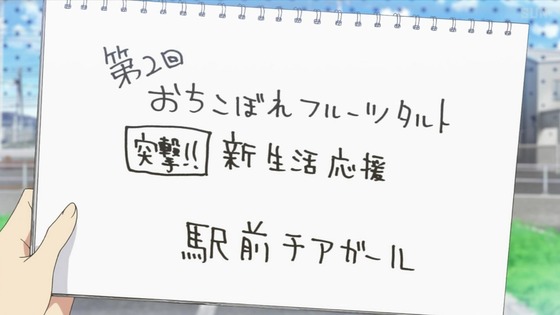 第2回
おちこぼれフルーツタルト
突撃!! 新生活応援
駅前チアガール